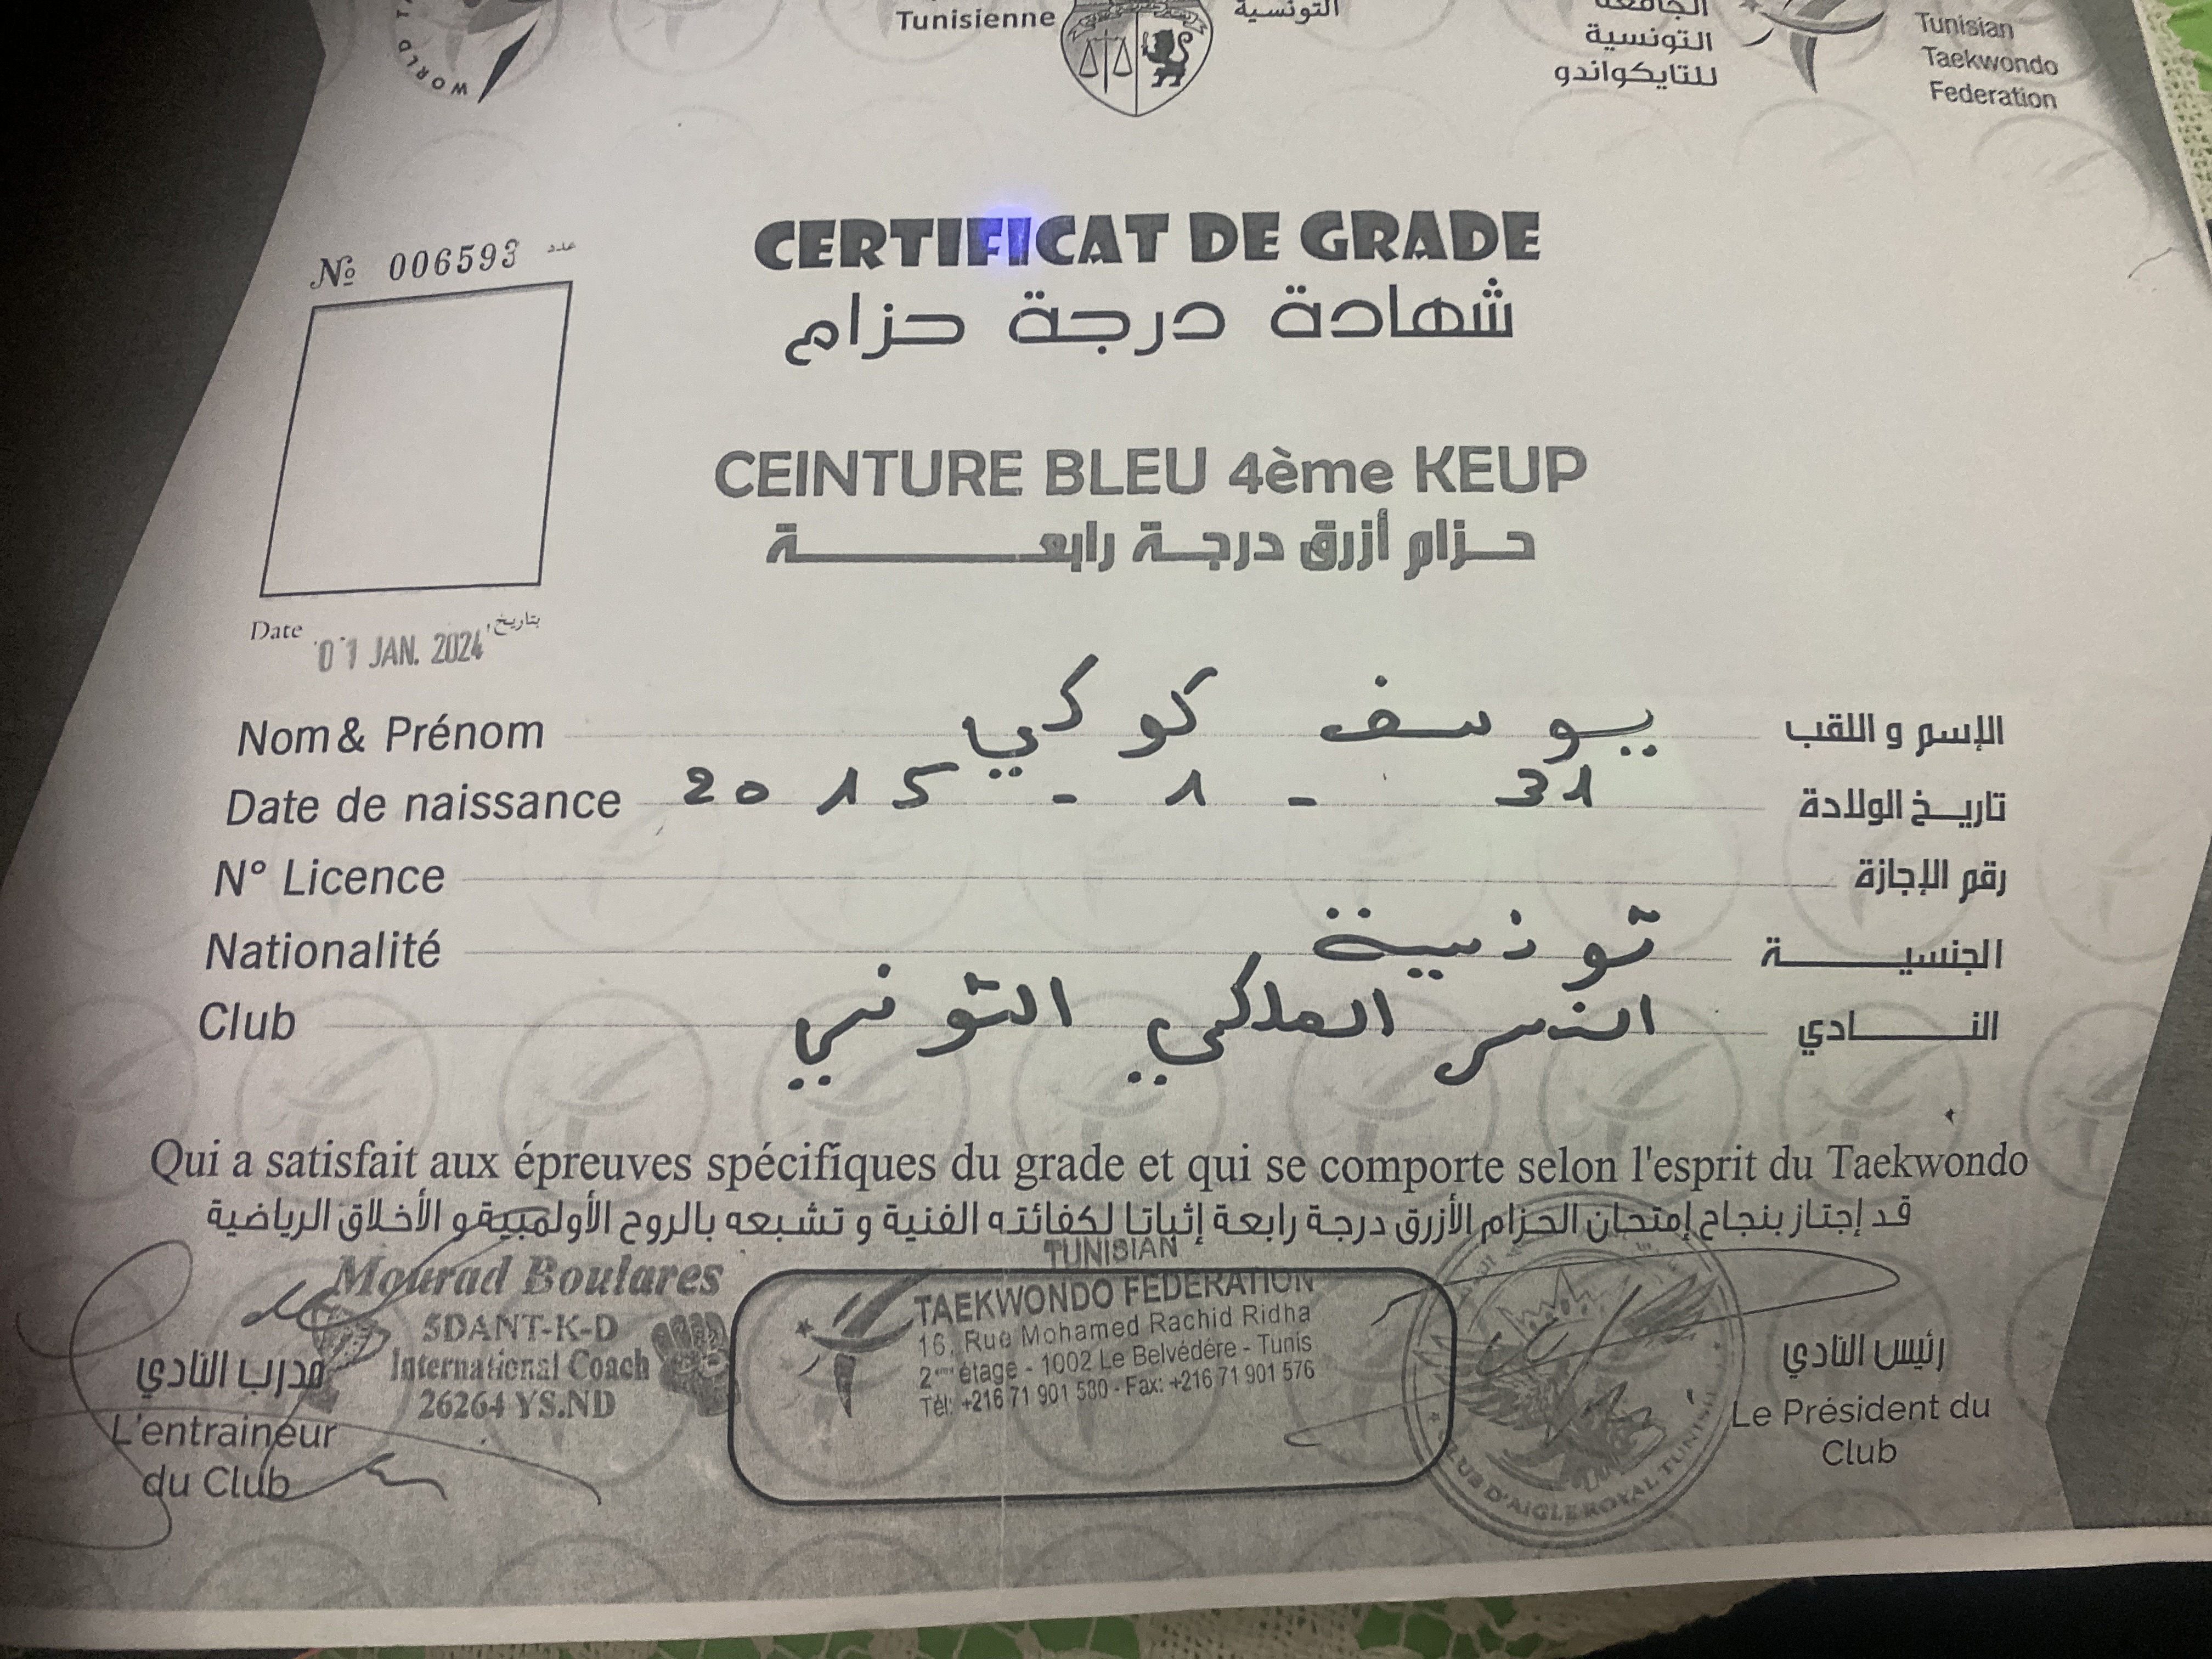 WORLD
Tunisienne
التونسية
الجامعة
التونسية
للتايكواندو
Tunisian
Taekwondo
Federation
№ 006593 عدد
CERTIFICAT DE GRADE
شهادة درجة حزام
CEINTURE BLEU 4ème KEUP
حـزام أزرق درجـة رابعـــــــــة
Date 01 JAN. 2024 بتاريخ
Nom & Prénom يوسف كوكي الإسم و اللقب
Date de naissance 2015 - 1 - 31 تاريـخ الولادة
N° Licence رقم الإجازة
Nationalité تونسية الجنسيــــــة
Club النسر الملكي التونسي النـــــادي
Qui a satisfait aux épreuves spécifiques du grade et qui se comporte selon l'esprit du Taekwondo
قد إجتاز بنجاح إمتحان الحزام الأزرق درجة رابعة إثباتا لكفائته الفنية و تشبعه بالروح الأولمبية و الأخلاق الرياضية
Mourad Boulares
5DANT-K-D
International Coach
26264 YS.ND
مدرب النادي
L'entraineur
du Club
TUNISIAN
TAEKWONDO FEDERATION
16, Rue Mohamed Rachid Ridha
2ème étage - 1002 Le Belvédére - Tunis
Tél: +216 71 901 580 - Fax: +216 71 901 576
CLUB D'AIGLE ROYAL TUNISIE
رئيس النادي
Le Président du
Club